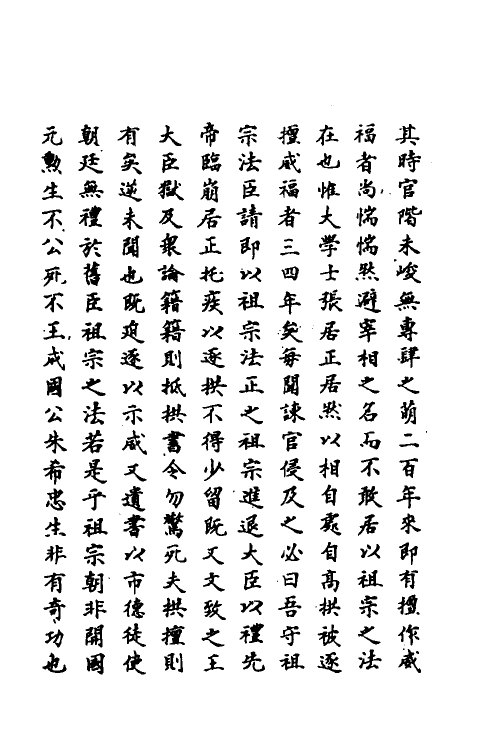 其時官階未峻無專肆之萌二百年來即有擅作威
福者尚惴惴然避宰相之名而不敢居以祖宗之法
在也惟大學士張居正居然以相自處自高拱被逐
擅威福者三四年矣每聞諫官侵及之必曰吾守祖
宗法臣請即以祖宗法正之祖宗進退大臣以禮先
帝臨崩居正托疾以逐拱不得少留既又文致之王
大臣獄及衆論籍籍則抵拱書令勿驚死夫拱擅則
有矣逆未聞也既迫逐以示威又遺書以市德徒使
朝廷無禮於舊臣祖宗之法若是乎祖宗朝非開國
元勲生不公死不王成國公朱希忠生非有奇功也